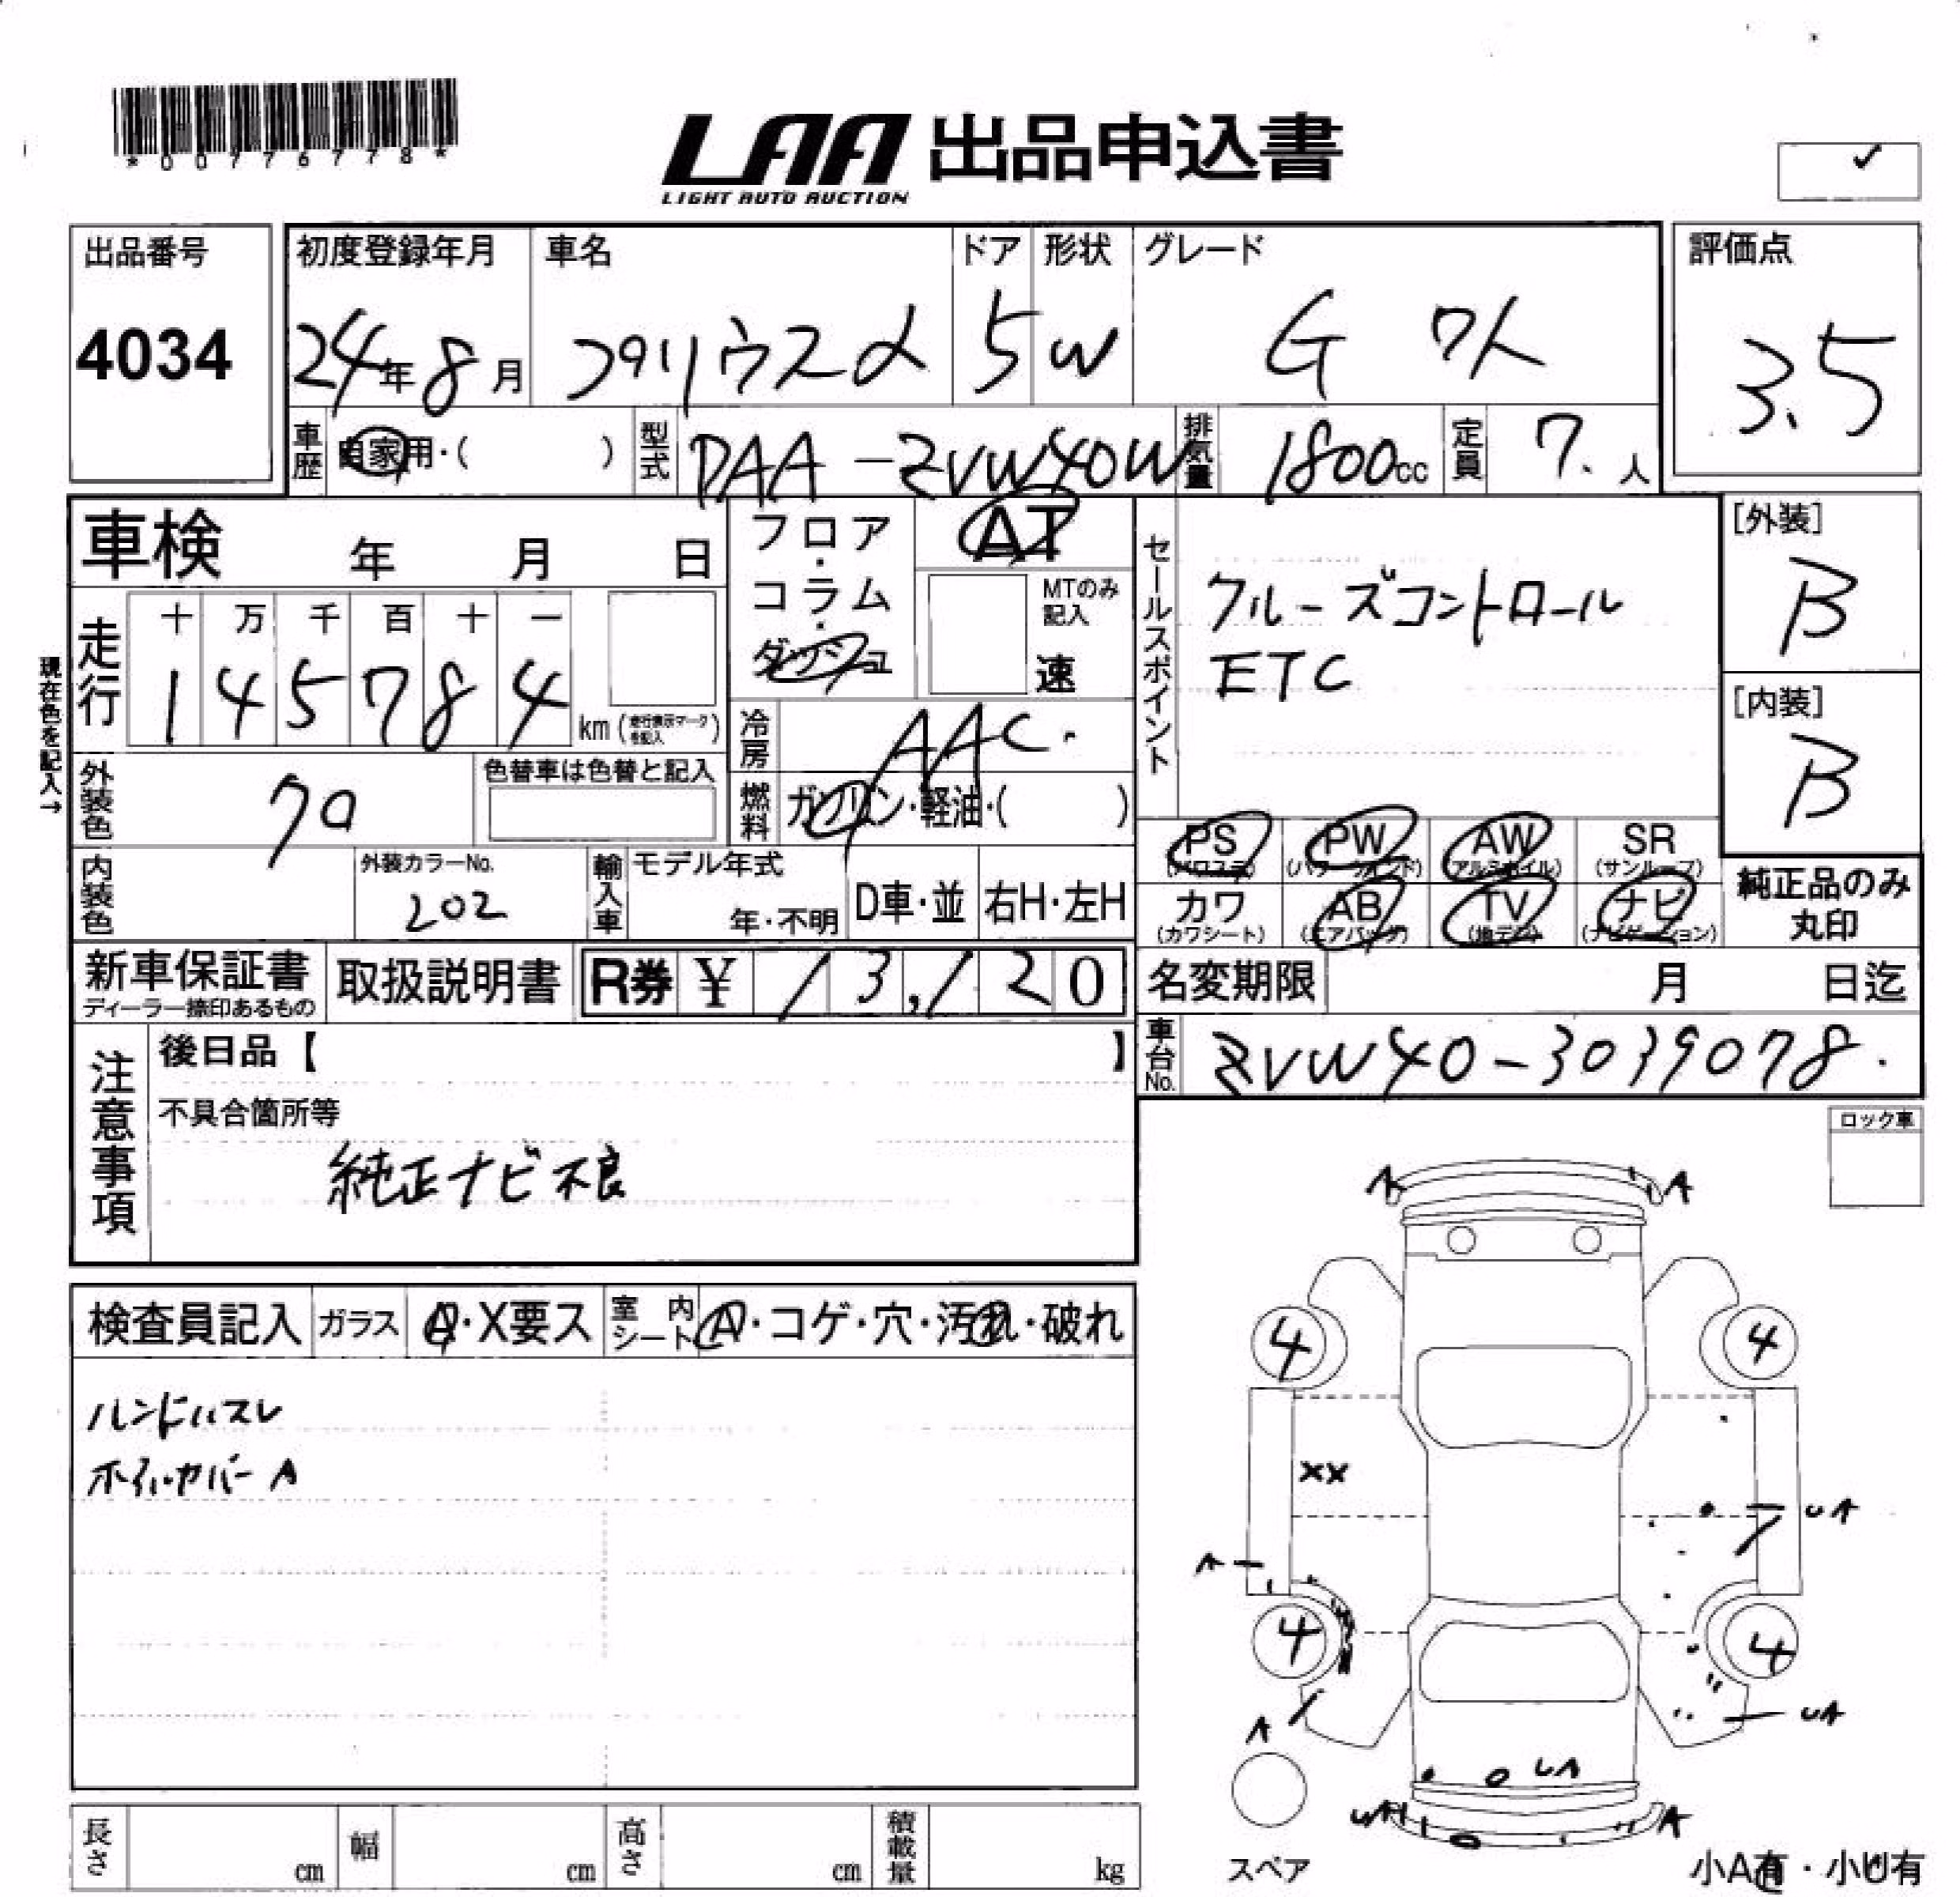 *00776778*
LAA 出品申込書
LIGHT AUTO AUCTION
✓
出品番号
4034
初度登録年月
24年8月
車名
プリウスα
ドア
5
形状
W
グレード
G 7人
評価点
3.5
車歴
自家用・( )
型式
DAA-ZVW40W
排気量
1800cc
定員
7.人
車検 年 月 日
フロア・コラム・ダッシュ
AT
MTのみ記入
速
走行
十 万 千 百 十 一
1 4 5 7 8 4
km(走行表示マークを記入)
現在色を記入→
冷房
AAC.
外装色
クロ
色替車は色替と記入
燃料
ガソリン・軽油・( )
内装色
外装カラーNo.
202
輸入車
モデル年式
年・不明
D車・並
右H・左H
セールスポイント
クルーズコントロール
ETC
[外装]
B
[内装]
B
PS PW AW SR
(パワステ) (パワーウインド) (アルミホイル) (サンルーフ)
カワ AB TV ナビ
(カワシート) (エアバッグ) (地デジ) (ナビゲーション)
純正品のみ
丸印
新車保証書
ディーラー捺印あるもの
取扱説明書
R券 ¥ 13,120
名変期限 月 日迄
車台No.
ZVW40-3039078.
注意事項
後日品【 】
不具合箇所等
純正ナビ不良
ロック車
検査員記入
ガラス
A・X要ス
室内シート
A・コゲ・穴・汚れ・破れ
ハンドルスレ
ホイルカバー A
A A
4 4
XX
UA
A
4 4
UA
A
UA
UA A
スペア
小A有・小U有
長さ cm
幅 cm
高さ cm
積載量 kg